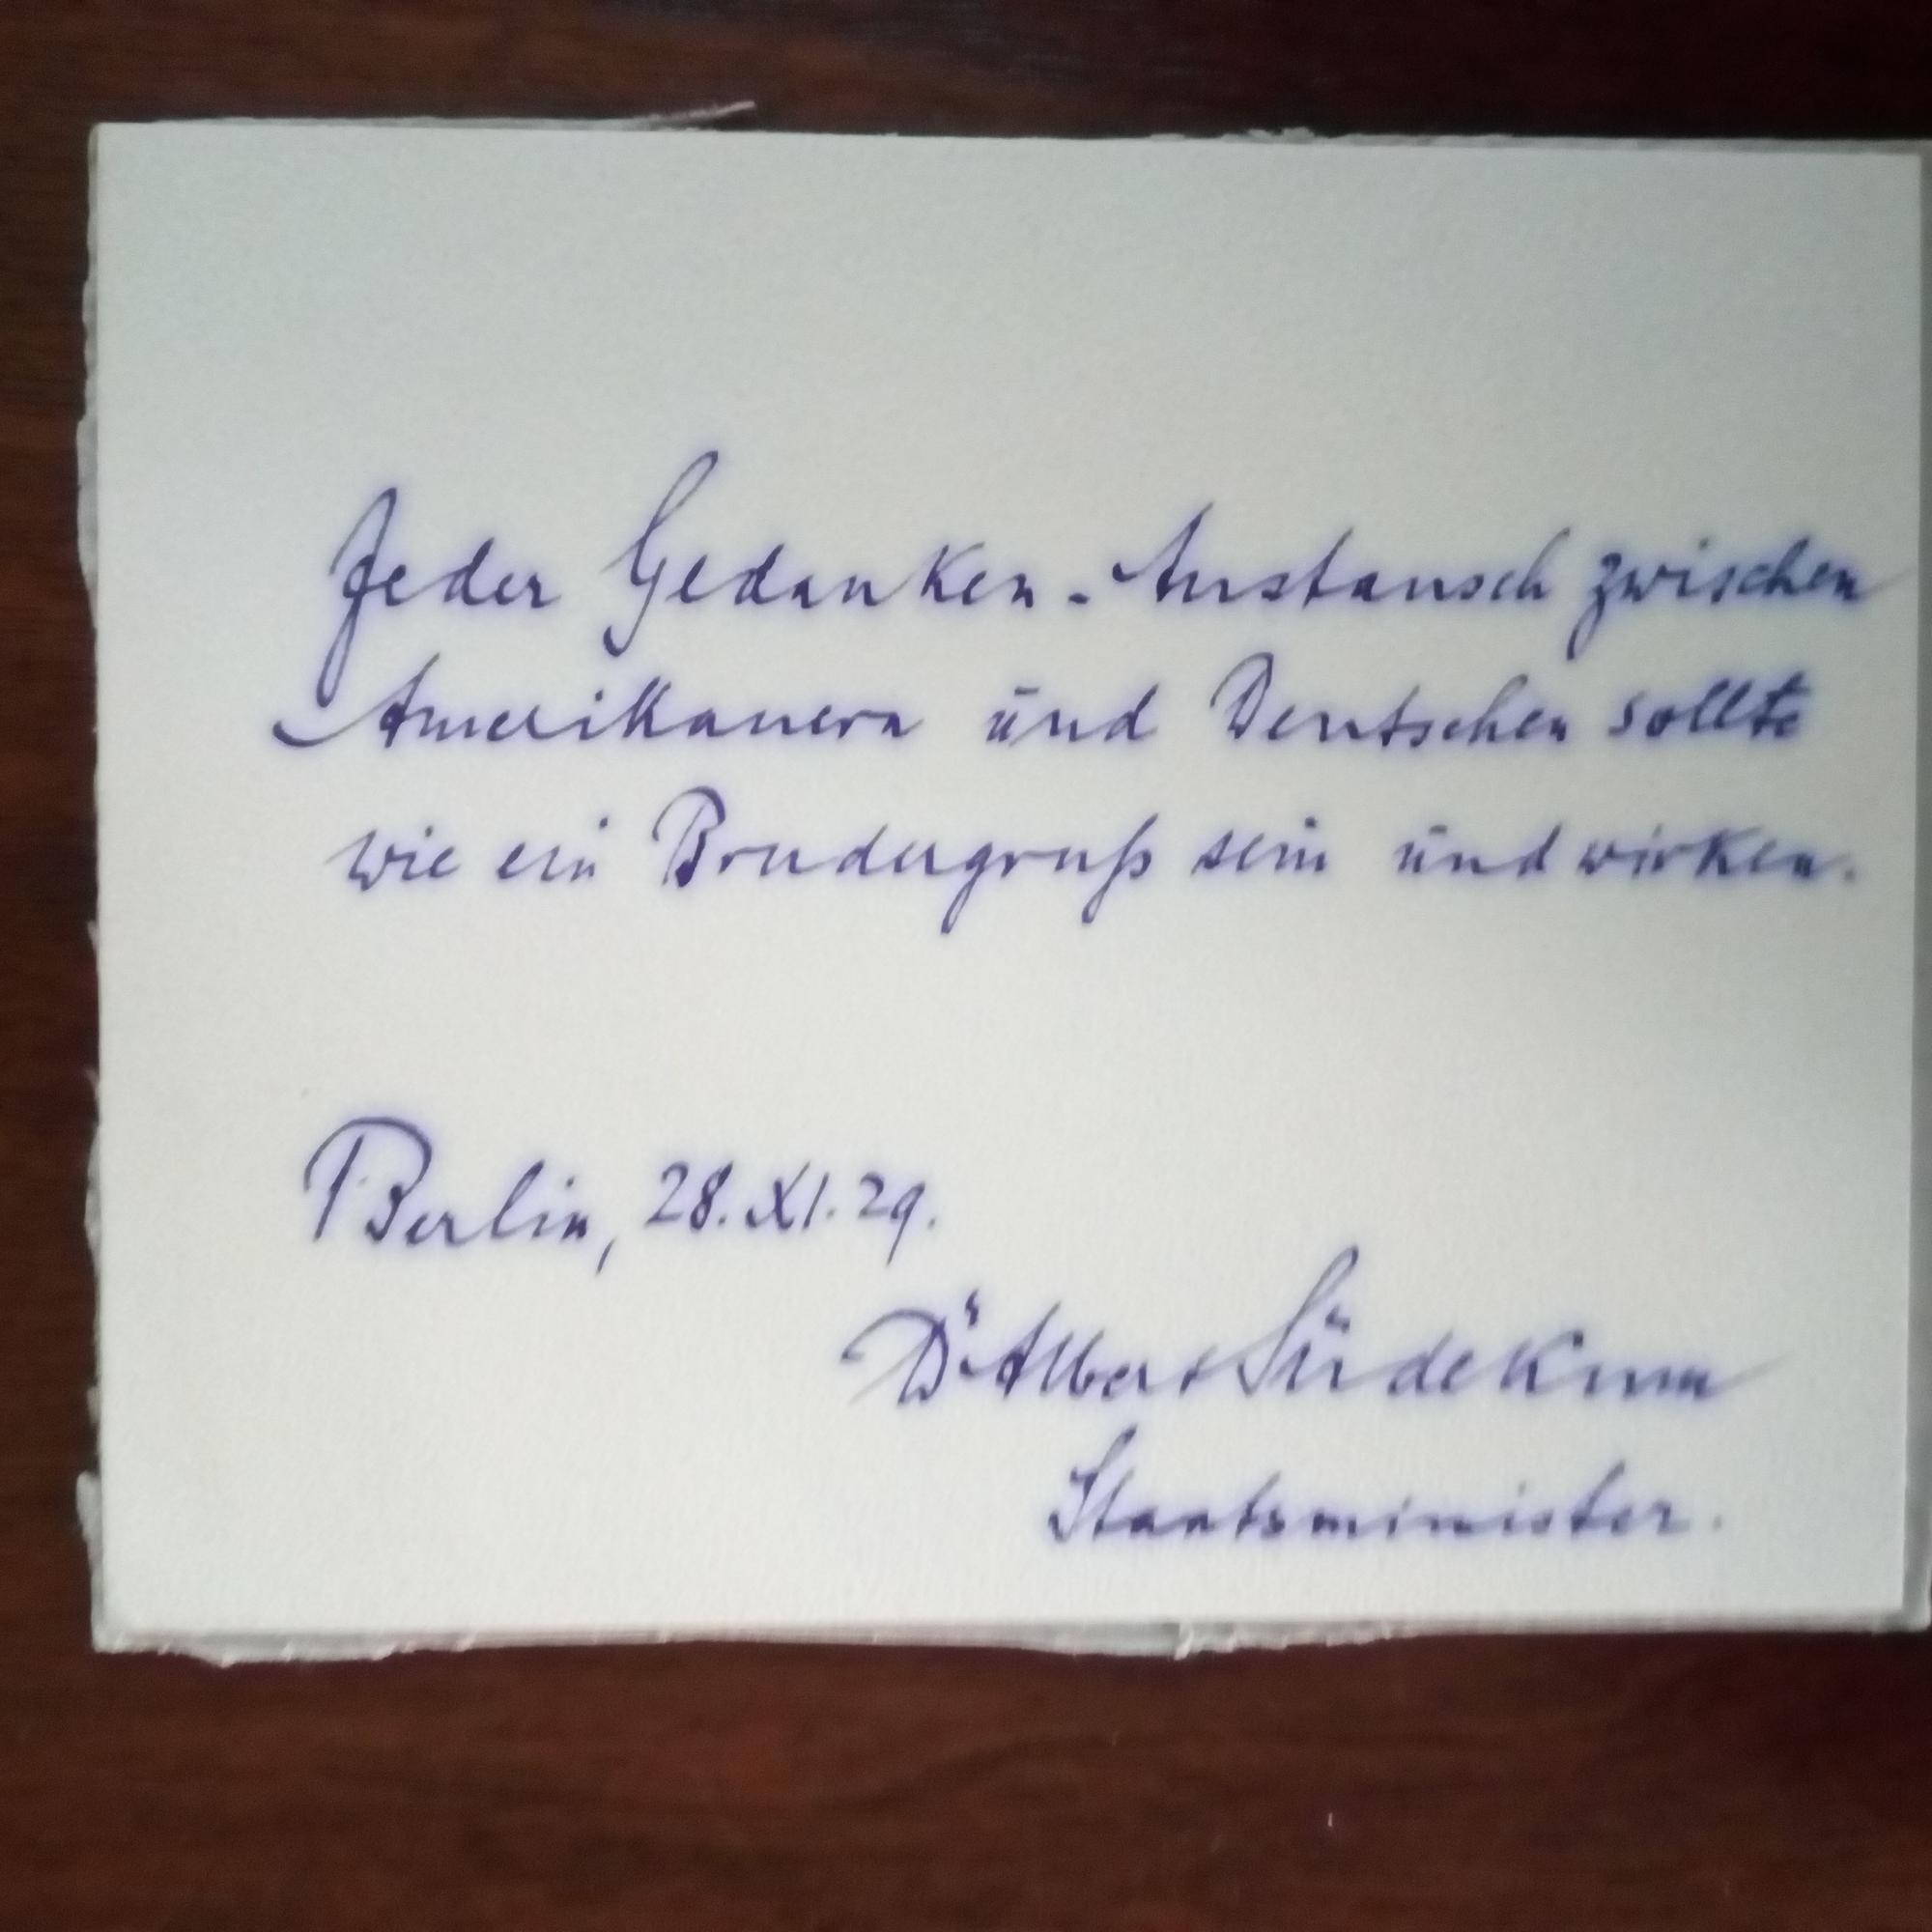 Jeder Gedanken-Austausch zwischen
Amerikanern und Deutschen sollte
wie ein Brudergruß sein und wirken.
Berlin, 28. XI. 29.
Dr Albert Südekum
Staatsminister.